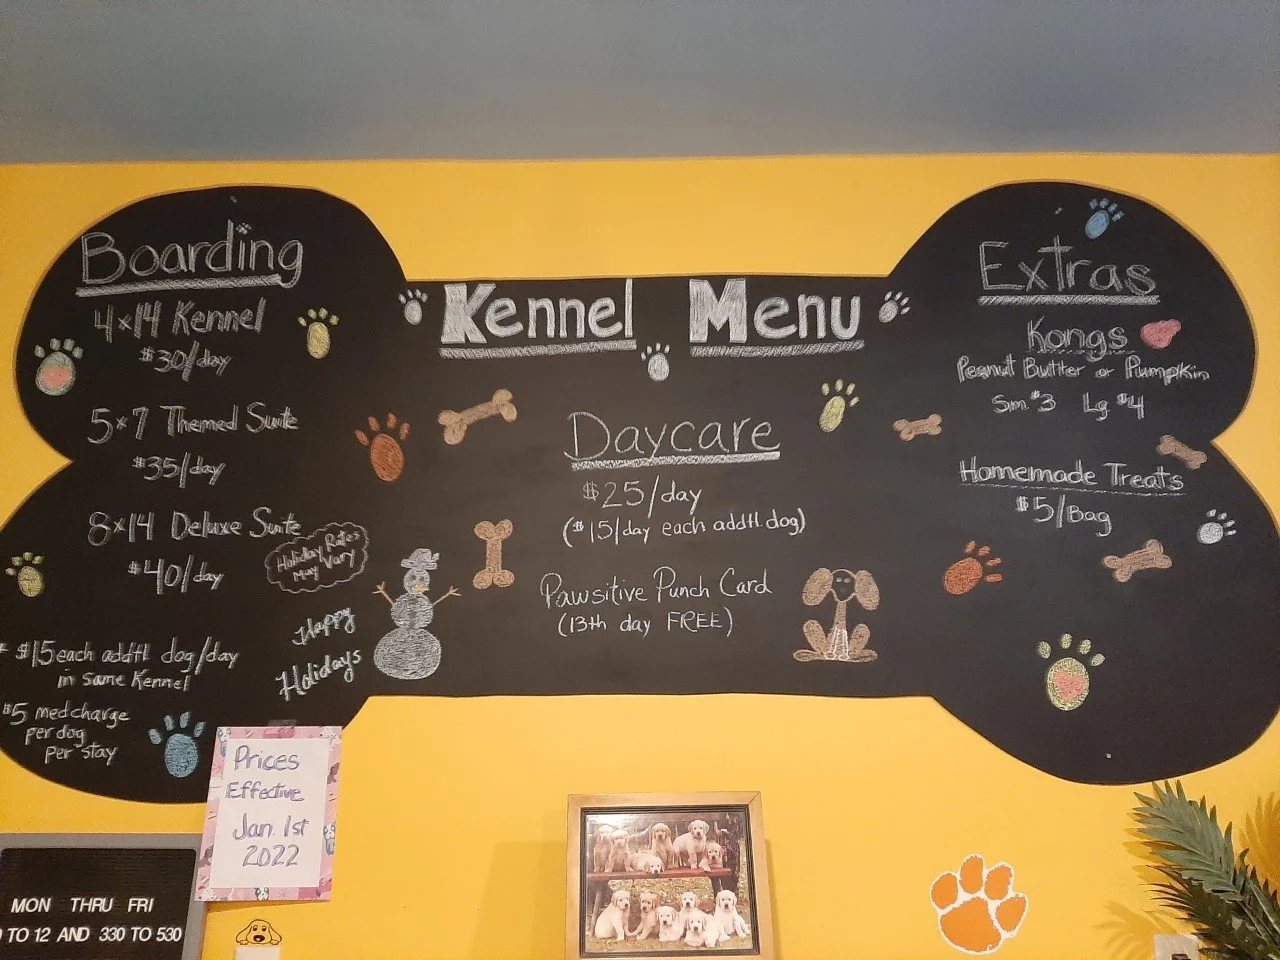 Boarding
4x14 Kennel
$30/day
5x7 Themed Suite
$35/day
8x14 Deluxe Suite
$40/day
Holiday Rates
May Vary
Happy
Holidays
* $15 each addtl dog/day
in same Kennel
$5 med charge
per dog
per stay
Kennel Menu
Daycare
$25/day
($15/day each addtl. dog)
Pawsitive Punch Card
(13th day FREE)
Extras
Kongs
Peanut Butter or Pumpkin
Sm. $3 Lg $4
Homemade Treats
$5/Bag
Prices
Effective
Jan. 1st
2022
MON THRU FRI
TO 12 AND 330 TO 530